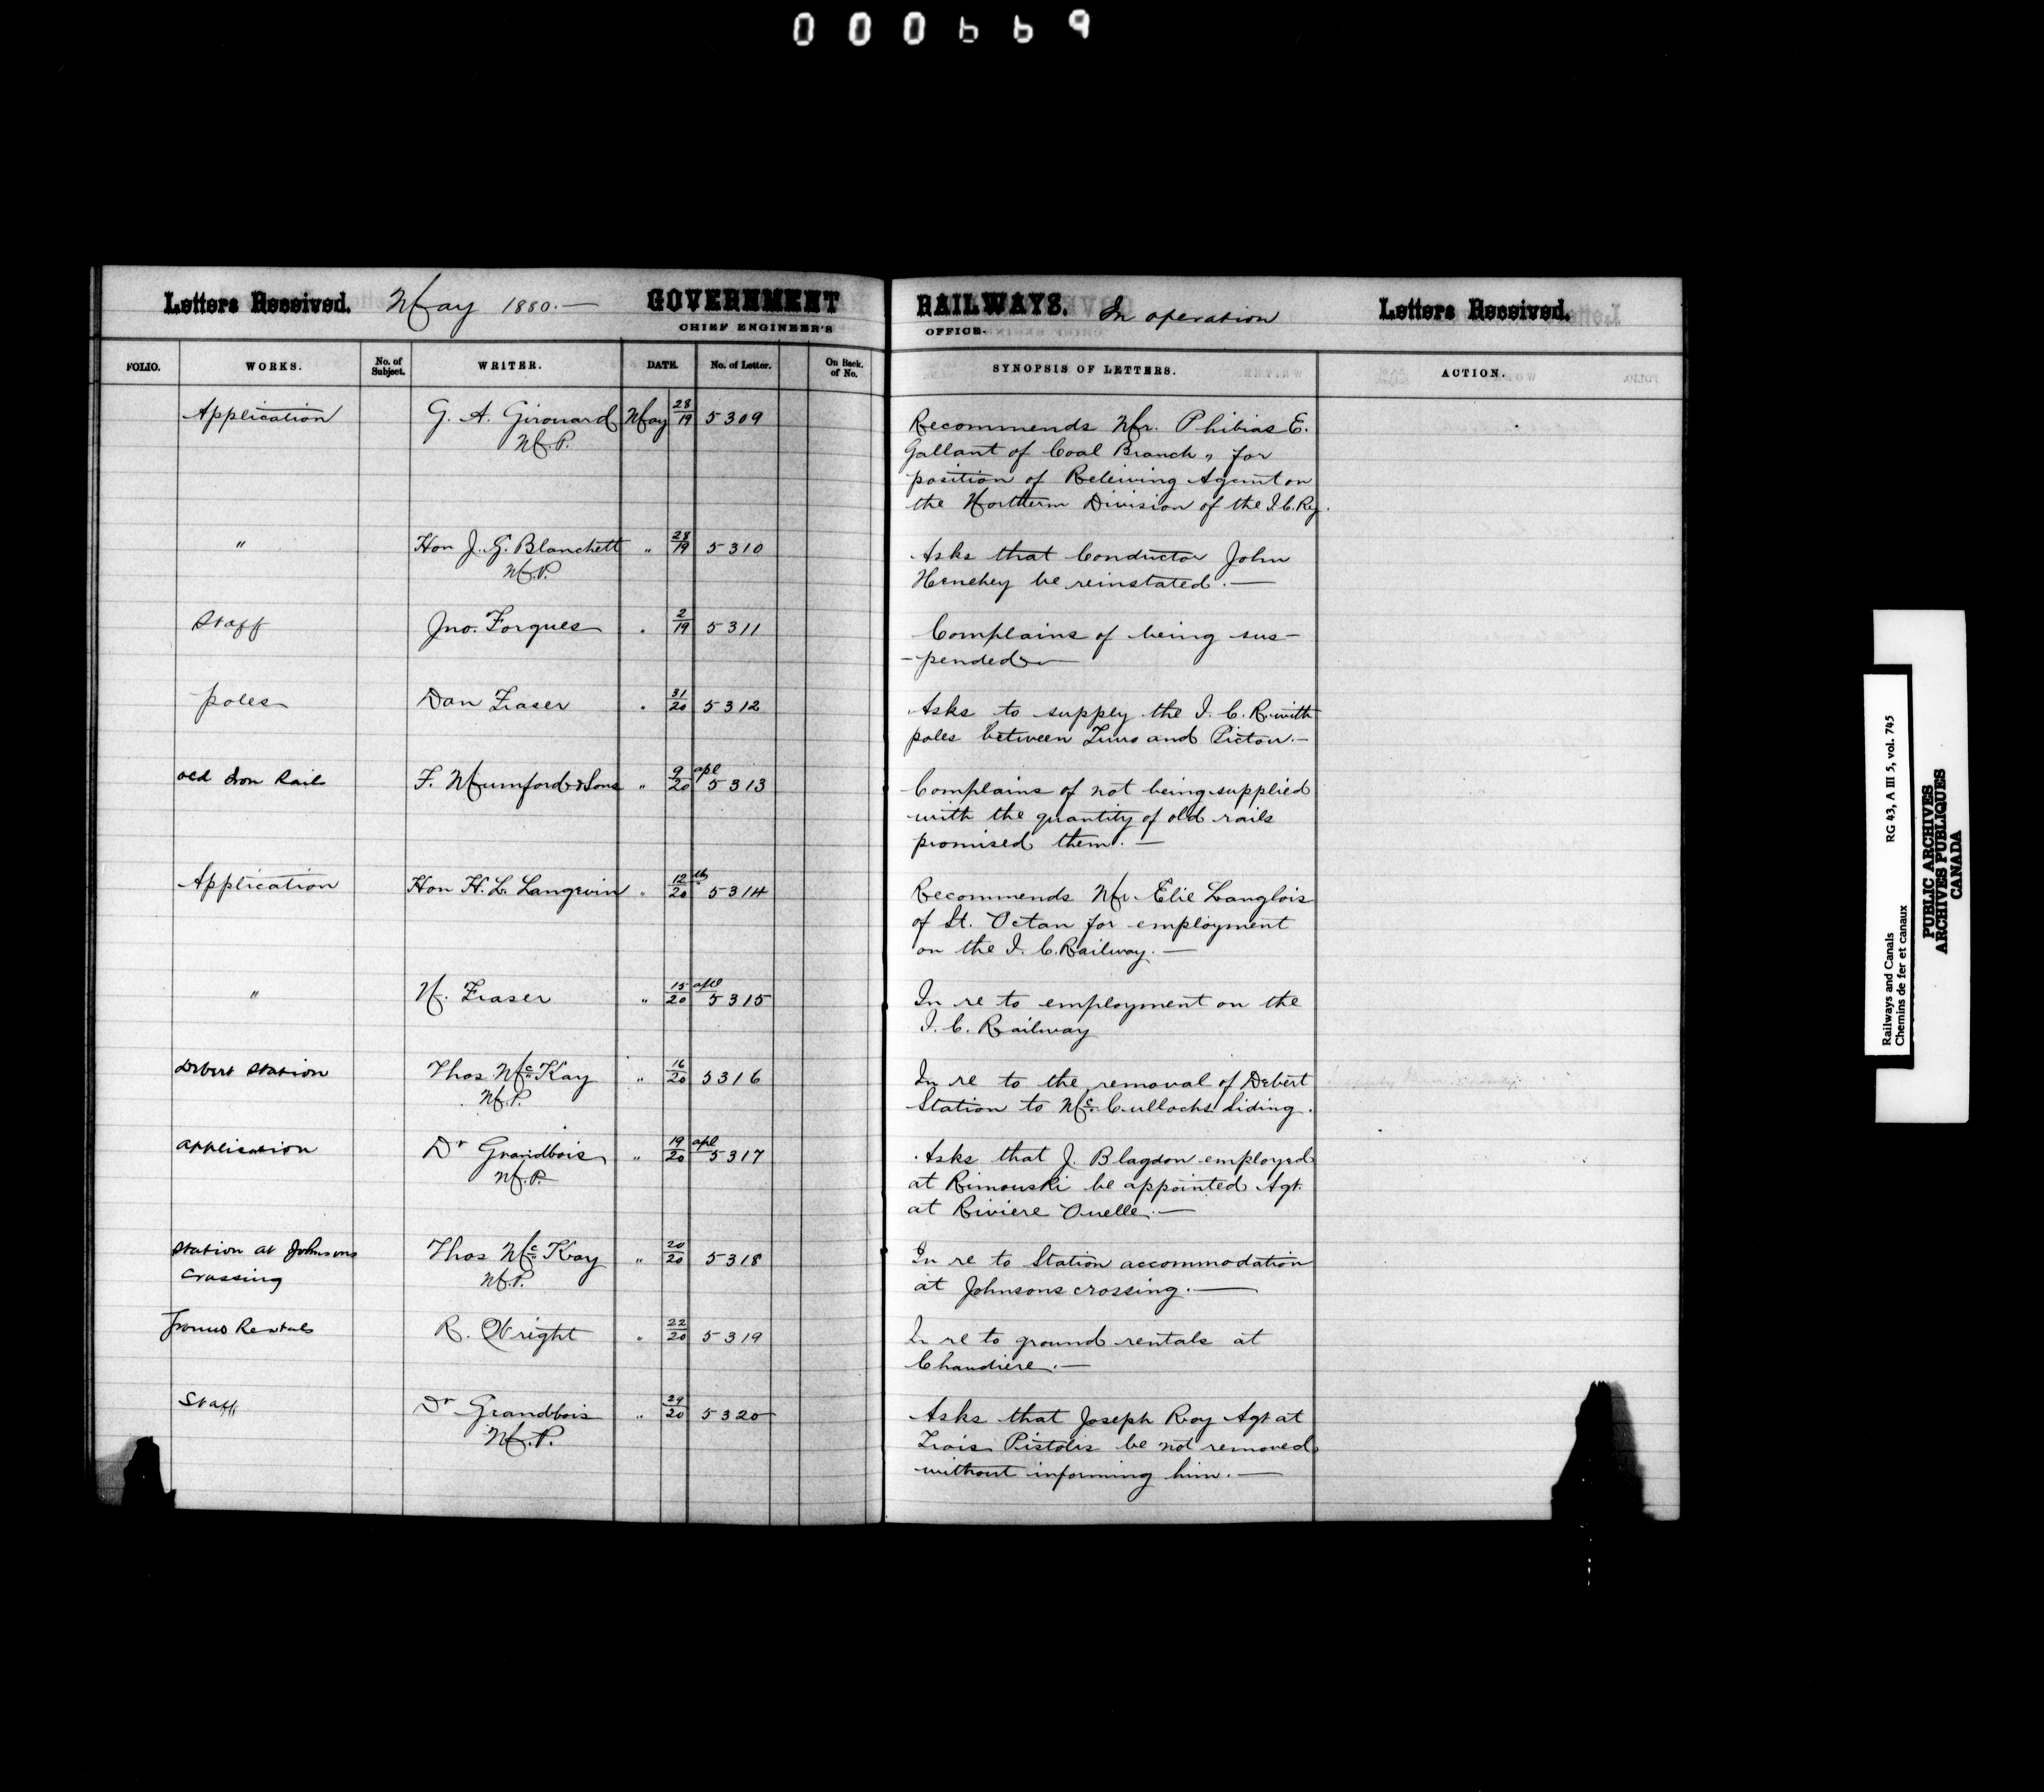 000669
Letters Received. May 1880.— GOVERNMENT RAILWAYS. In operation Letters Received.
CHIEF ENGINEER'S OFFICE.
FOLIO. WORKS. No. of Subject. WRITER. DATE. No. of Letter. On Back of No. SYNOPSIS OF LETTERS. ACTION.
Application G. A. Girouard May 28/19 5309 Recommends Mr. Phibias E.
M.P. Gallant of Coal Branch, for
position of Releiving Agent on
the Northern Division of the I.C.Ry.
" Hon J. G. Blanchett " 28/19 5310 Asks that Conductor John
M.P. Henchey be reinstated.—
Staff Jno. Forgues " 2/19 5311 Complains of being sus-
-pended
poles Dan Fraser " 31/20 5312 Asks to supply the I. C. R. with
poles between Truro and Pictou.—
old Iron Rail F. Mumford & Sons " 9/20 apl 5313 Complains of not being supplied
with the quantity of old rails
promised them.—
Application Hon H. L. Langevin " 12/20 5314 Recommends Mr. Elie Langlois
of St. Octan for employment
on the I. C. Railway.—
" N. Fraser " 15/20 apl 5315 In re to employment on the
I. C. Railway
Debert Station Thos McKay " 16/20 5316 In re to the removal of Debert
M.P. Station to McCullochs Siding.
Application Dr Grandbois " 19/20 apl 5317 Asks that J. Blagdon employed
M.P. at Rimouski be appointed Agt.
at Riviere Ouelle.—
Station at Johnsons Thos McKay " 20/20 5318 In re to Station accommodation
Crossing M.P. at Johnsons crossing.—
Rentals R. Wright " 22/20 5319 In re to ground rentals at
Chaudiere.—
Staff Dr Grandbois " 29/20 5320 Asks that Joseph Roy Agt at
M.P. Trois Pistolis be not removed
without informing him.—
Railways and Canals RG 43, A III 5, vol. 745
Chemins de fer et canaux
PUBLIC ARCHIVES
ARCHIVES PUBLIQUES
CANADA